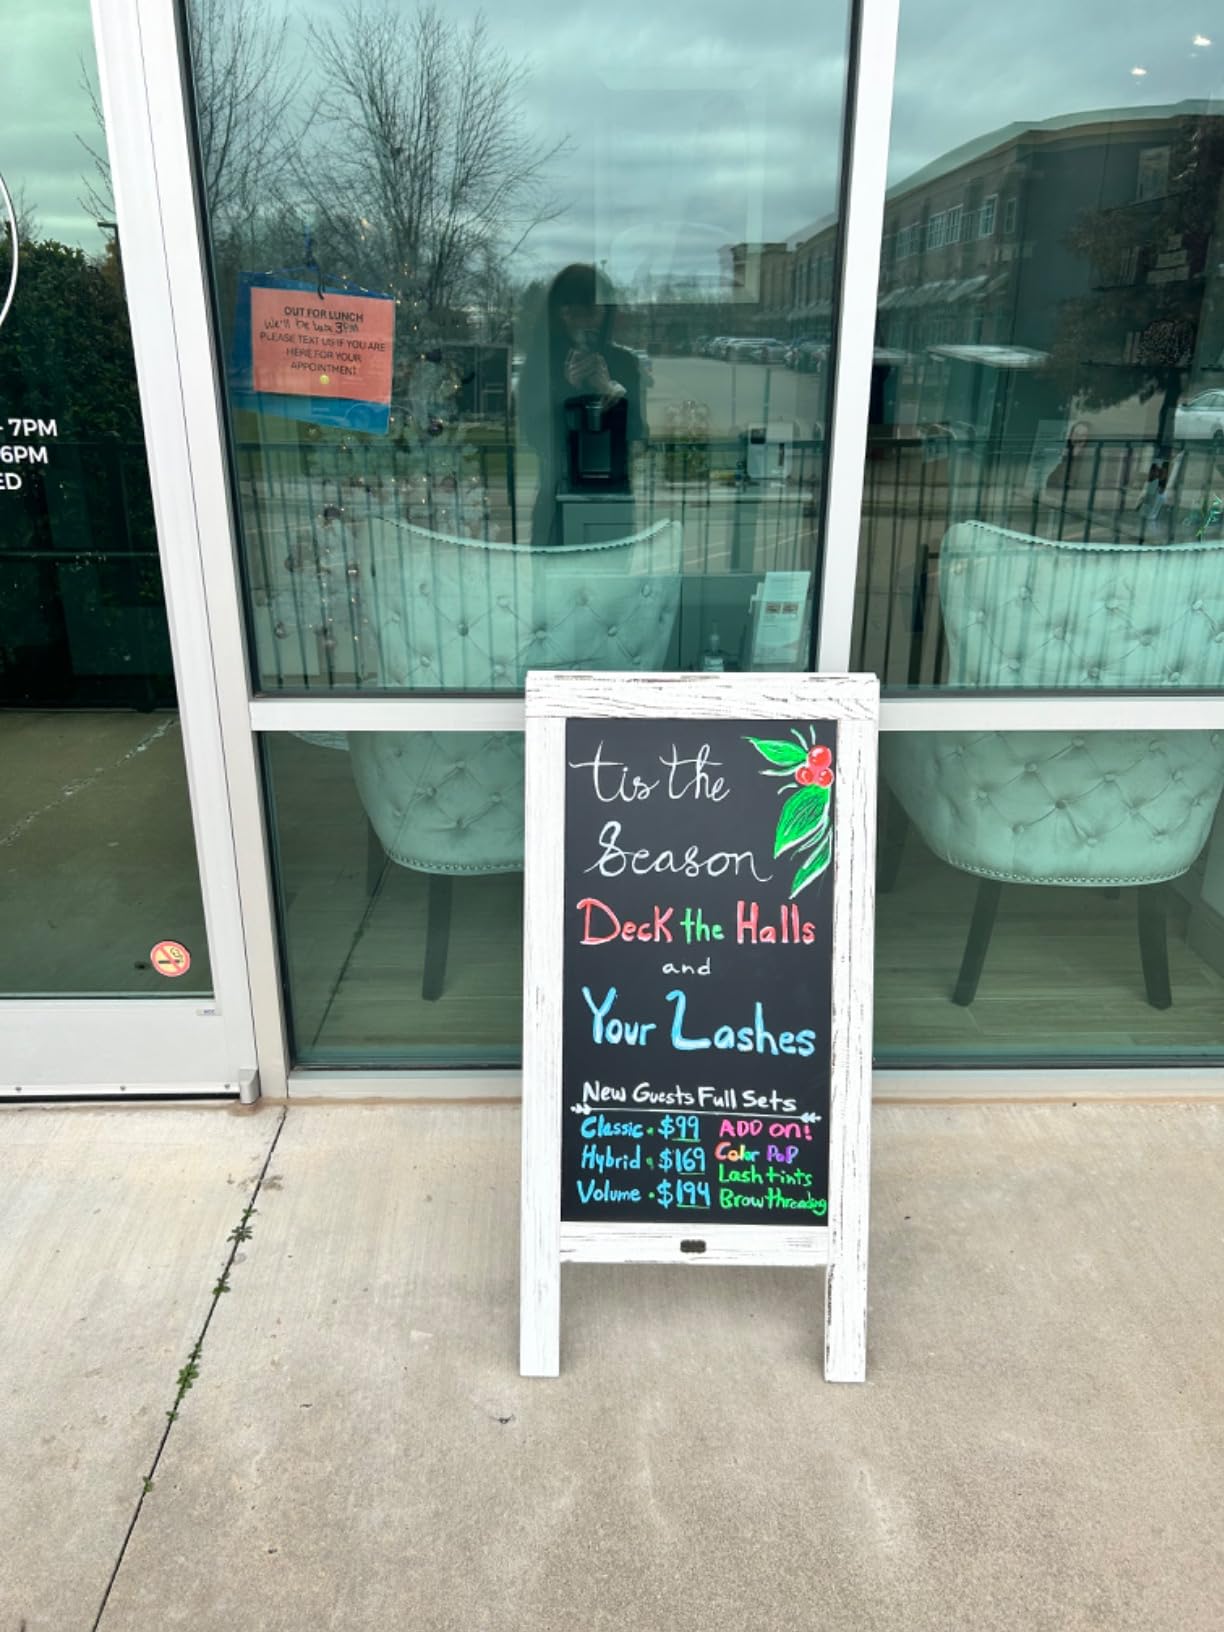 OUT FOR LUNCH
We'll be back 3PM
PLEASE TEXT US IF YOU ARE
HERE FOR YOUR
APPOINTMENT
- 7PM
6PM
ED
tis the
Season
Deck the Halls
and
Your Lashes
New Guests Full Sets
Classic • $99
Hybrid • $169
Volume • $194
ADD ON!
Color POP
Lash tints
Brow threading